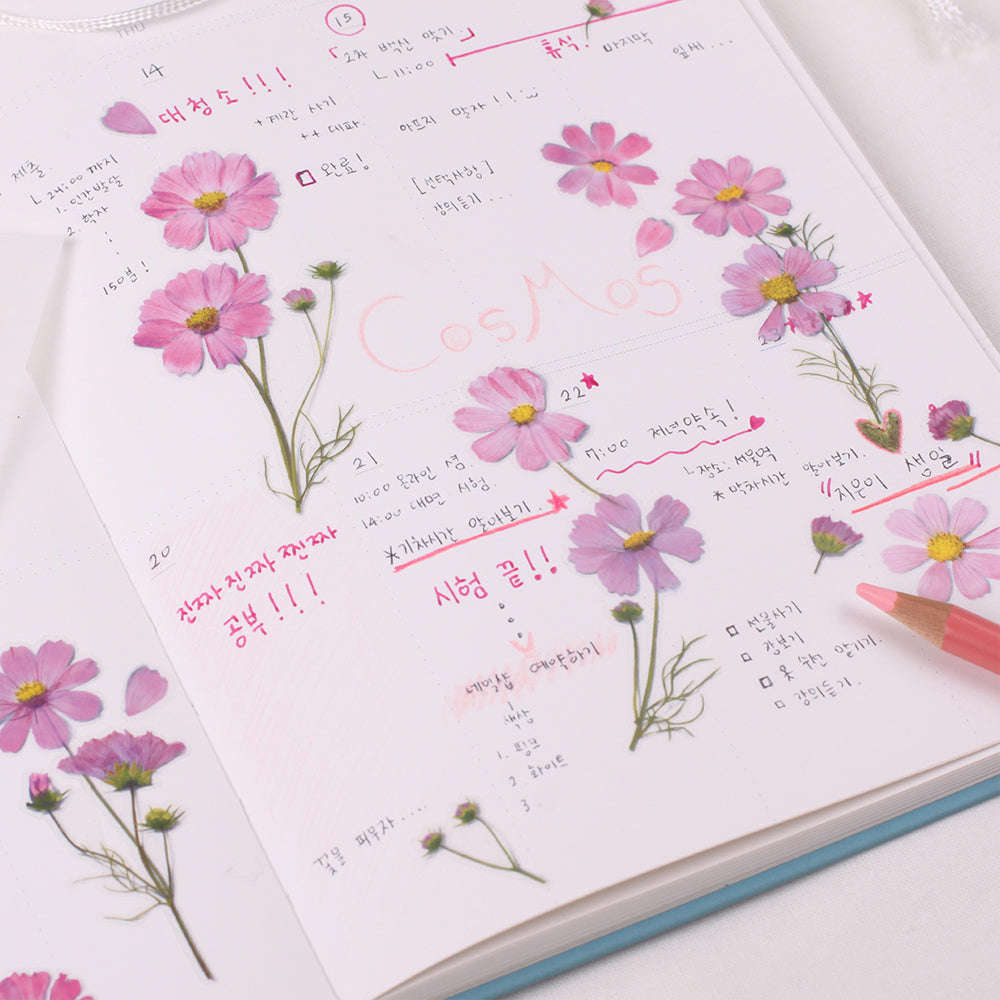 THU
14
15
「2차 백신 맞기.」
ㄴ 11:00
휴식.
마지막
잎새...
대청소!!!
* 계란 사기
** 대파.
완료!
아프지 말자!!
[선택사항]
강의듣기...
제출
ㄴ 24:00 까지
1. 인간발달
2. 학자
150분!
CosMos
20
진짜 진짜 찐짜
공부!!!
꽃을 피우자....
21
10:00 온라인 셤.
14:00 대면 시험
*기차시간 알아보기.
시험 끝!!
네일샵 예약하기
색상
1. 핑크
2. 화이트
3.
22
7:00 저녁약속!
ㄴ장소: 서울역
* 막차시간 알아보기.
"지은이 생일"
선물사기
장보기
옷 수선 맡기기.
강의듣기.